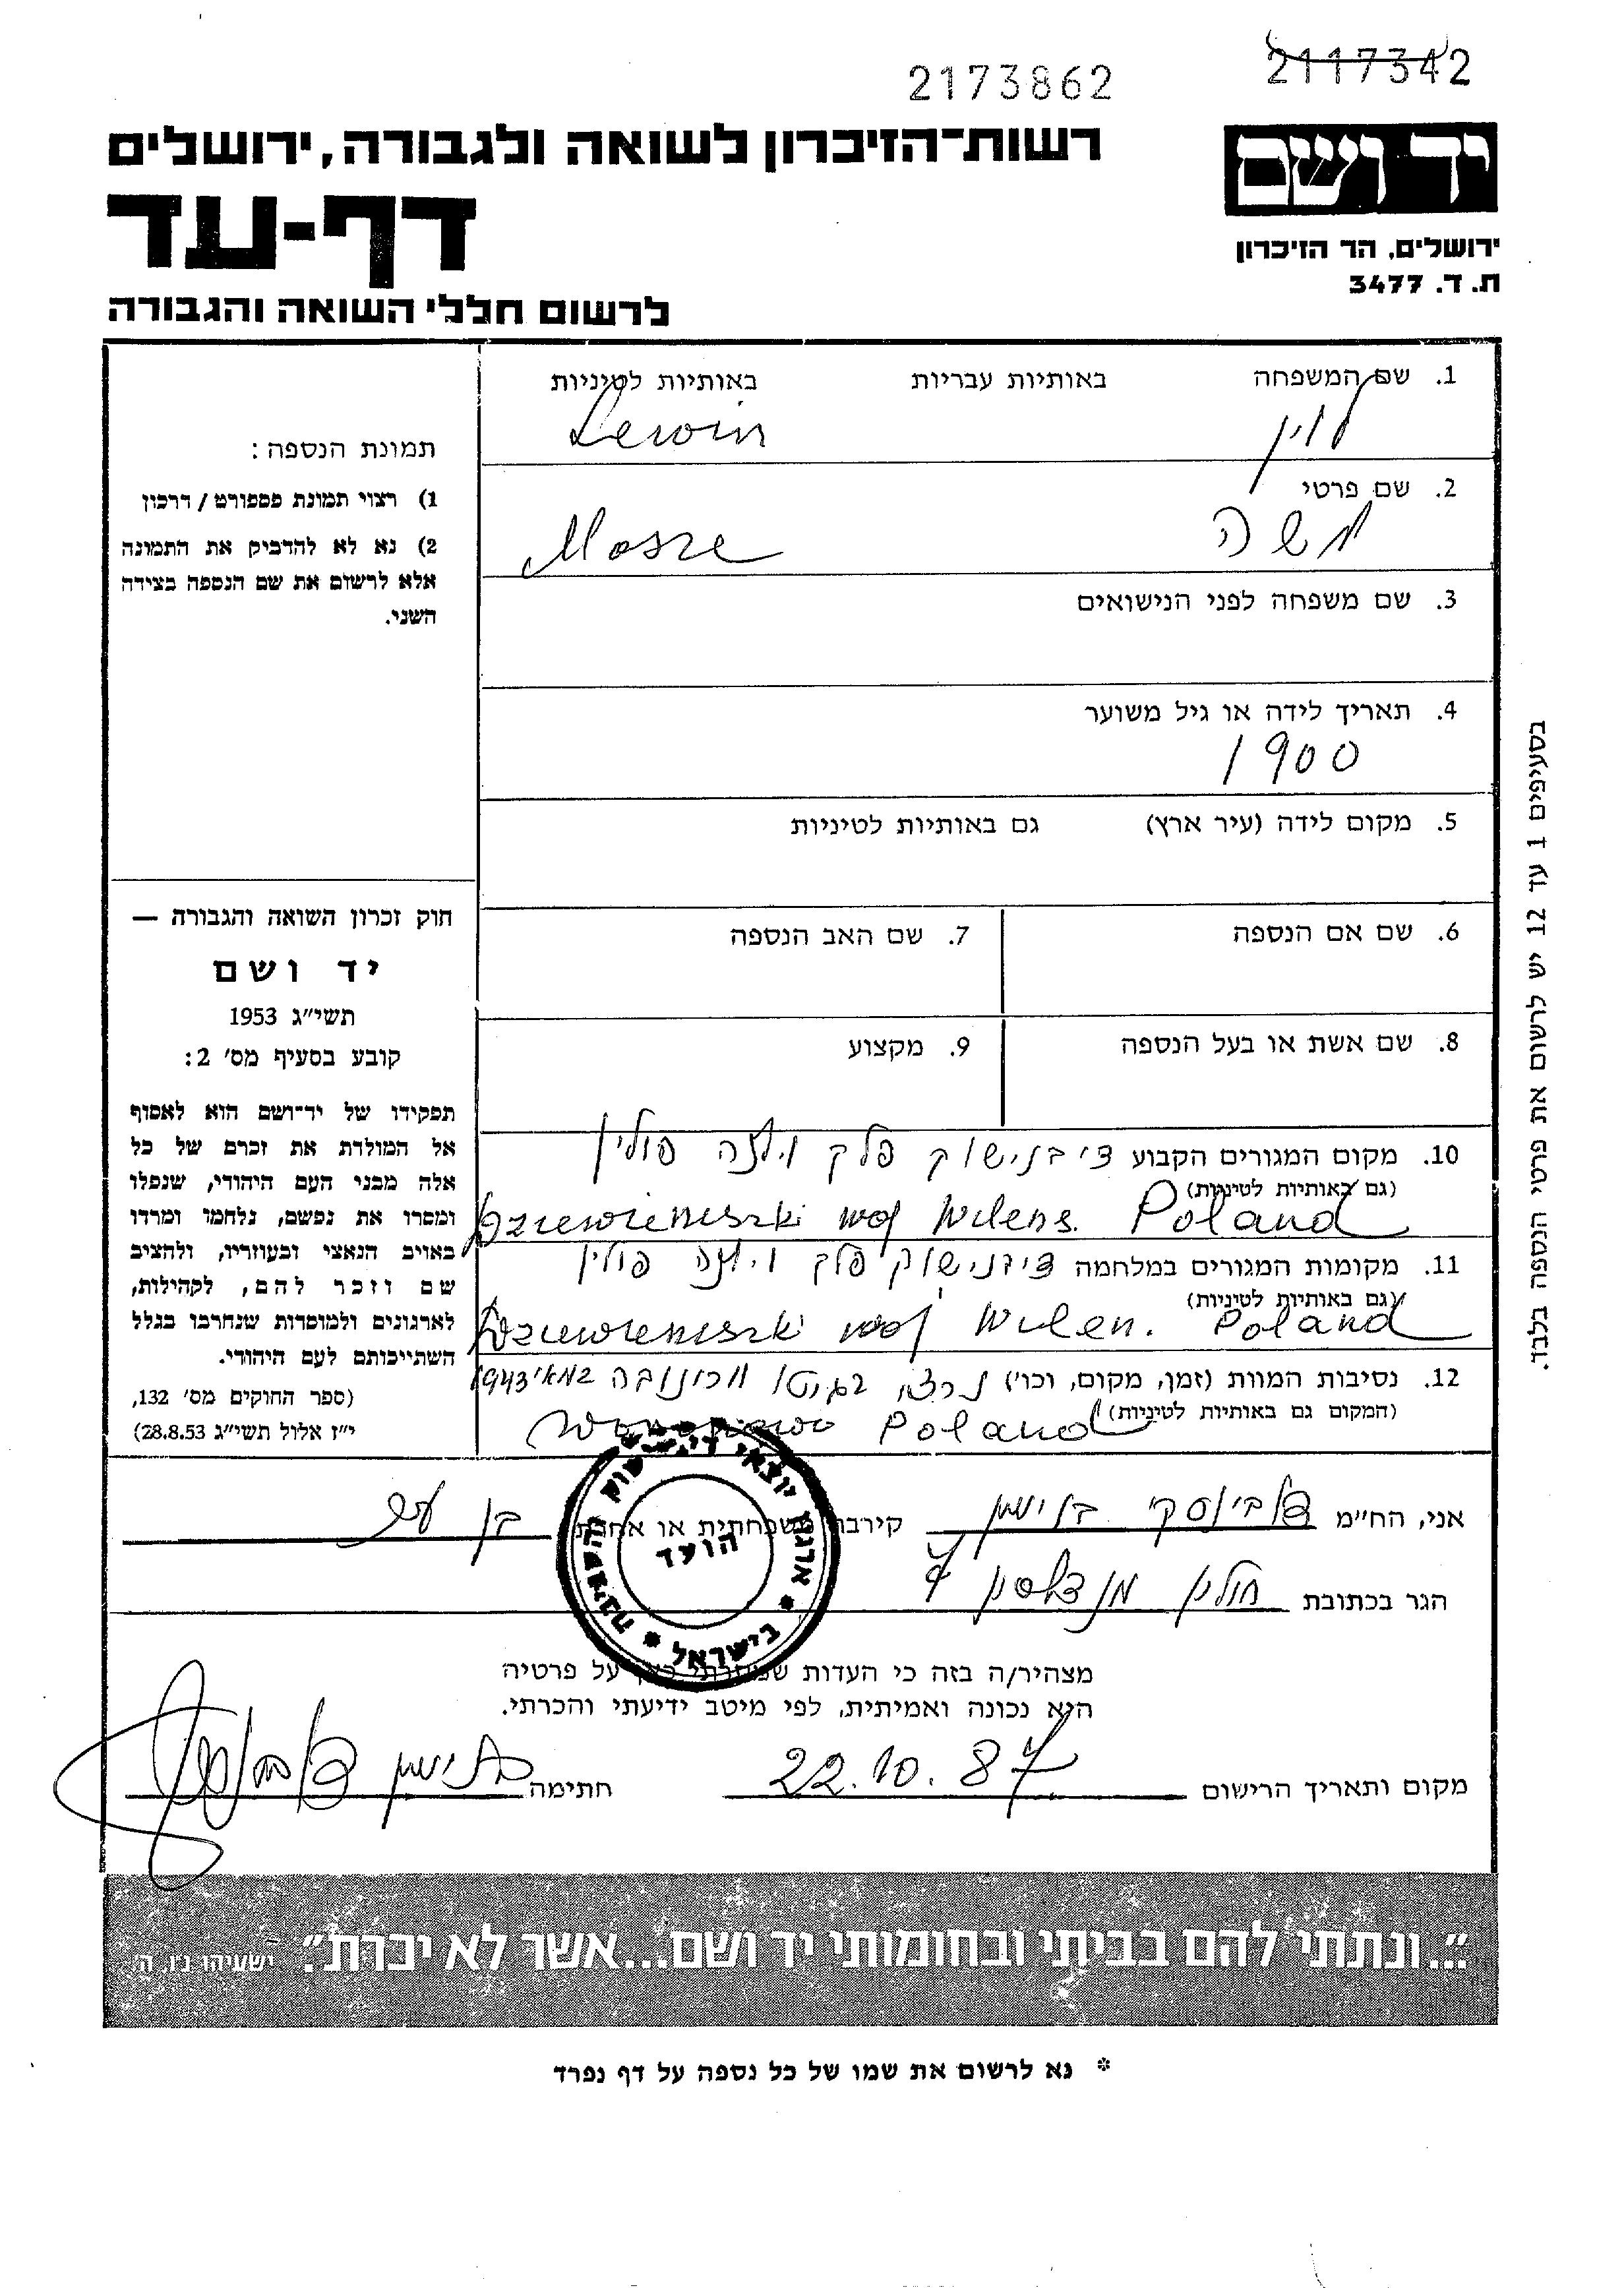 2117342
2173862
יד ושם
רשות־הזיכרון לשואה ולגבורה, ירושלים
דף-עד
ירושלים, הר הזיכרון
ת. ד. 3477
לרשום חללי השואה והגבורה
1. שם המשפחה באותיות עבריות באותיות לטיניות
לוין Lewin
2. שם פרטי
משה Mosze
3. שם משפחה לפני הנישואים
4. תאריך לידה או גיל משוער
1900
5. מקום לידה (עיר ארץ) גם באותיות לטיניות
6. שם אם הנספה 7. שם האב הנספה
8. שם אשת או בעל הנספה 9. מקצוע
10. מקום המגורים הקבוע ציבנישוק פלך וילנה פולין
(גם באותיות לטיניות)
Dziewieniszki woj Wilens. Poland
11. מקומות המגורים במלחמה ציבנישוק פלך וילנה פולין
(גם באותיות לטיניות)
Dziewieniszki woj Wilen. Poland
12. נסיבות המוות (זמן, מקום, וכו') נרצח בגיטו וורונובה במאי 1943
(המקום גם באותיות לטיניות)
Woronowo Poland
תמונת הנספה:
1) רצוי תמונת פספורט / דרכון
2) נא לא להדביק את התמונה
אלא לרשום את שם הנספה בצידה
השני.
חוק זכרון השואה והגבורה —
יד ושם
תשי״ג 1953
קובע בסעיף מס׳ 2:
תפקידו של יד־ושם הוא לאסוף
אל המולדת את זכרם של כל
אלה מבני העם היהודי, שנפלו
ומסרו את נפשם, נלחמו ומרדו
באויב הנאצי ובעוזריו, ולהציב
שם וזכר להם, לקהילות,
לארגונים ולמוסדות שנחרבו בגלל
השתייכותם לעם היהודי.
(ספר החוקים מס׳ 132,
י״ז אלול תשי״ג 28.8.53)
בסעיפים 1 עד 12 יש לרשום את פרטי הנספה בלבד.
אני, הח״מ קירבה משפחתית או אחרת בן
הגר בכתובת חולון מנדלסון 4
ארגון יוצאי והסביבה בישראל
הועד
מצהיר/ה בזה כי העדות שמסרתי כאן על פרטיה
היא נכונה ואמיתית, לפי מיטב ידיעתי והכרתי.
מקום ותאריך הרישום 22.10.87 חתימה
״...ונתתי להם בביתי ובחומותי יד ושם...אשר לא יכרת״. ישעיהו נ״ו, ה׳
* נא לרשום את שמו של כל נספה על דף נפרד